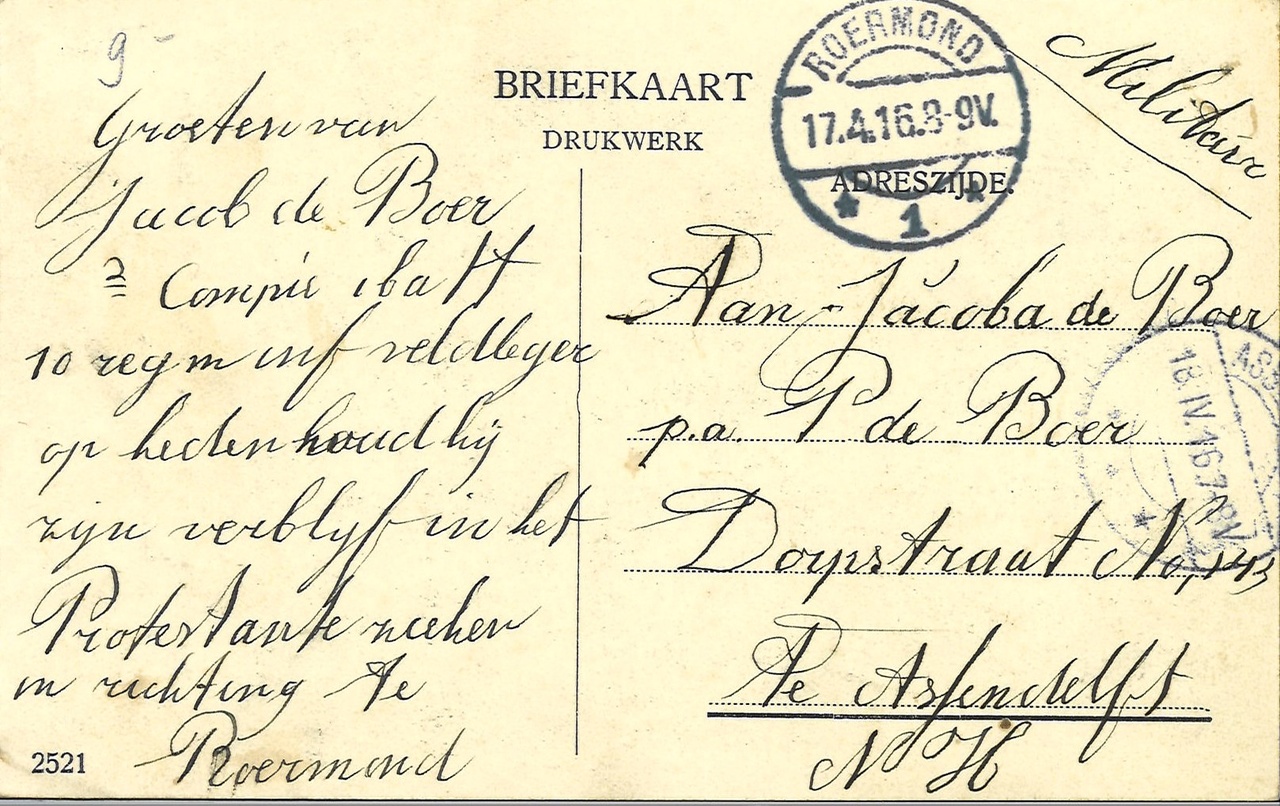 9-
BRIEFKAART
DRUKWERK
ADRESZIJDE.
ROERMOND
17.4.16.8-9V.
1
Militair
Groeten van
Jacob de Boer
2 Compie 1 ba II
10 regm inf veldleger
op heden houd hij
zijn verblyf in het
Protestante zieken
in richting te
Roermond
2521
Aan Jacoba de Boer
p.a. P de Boer
Dorpstraat No, 143
Te Assendelft
N H
ASS
18.IV.16.7-8V